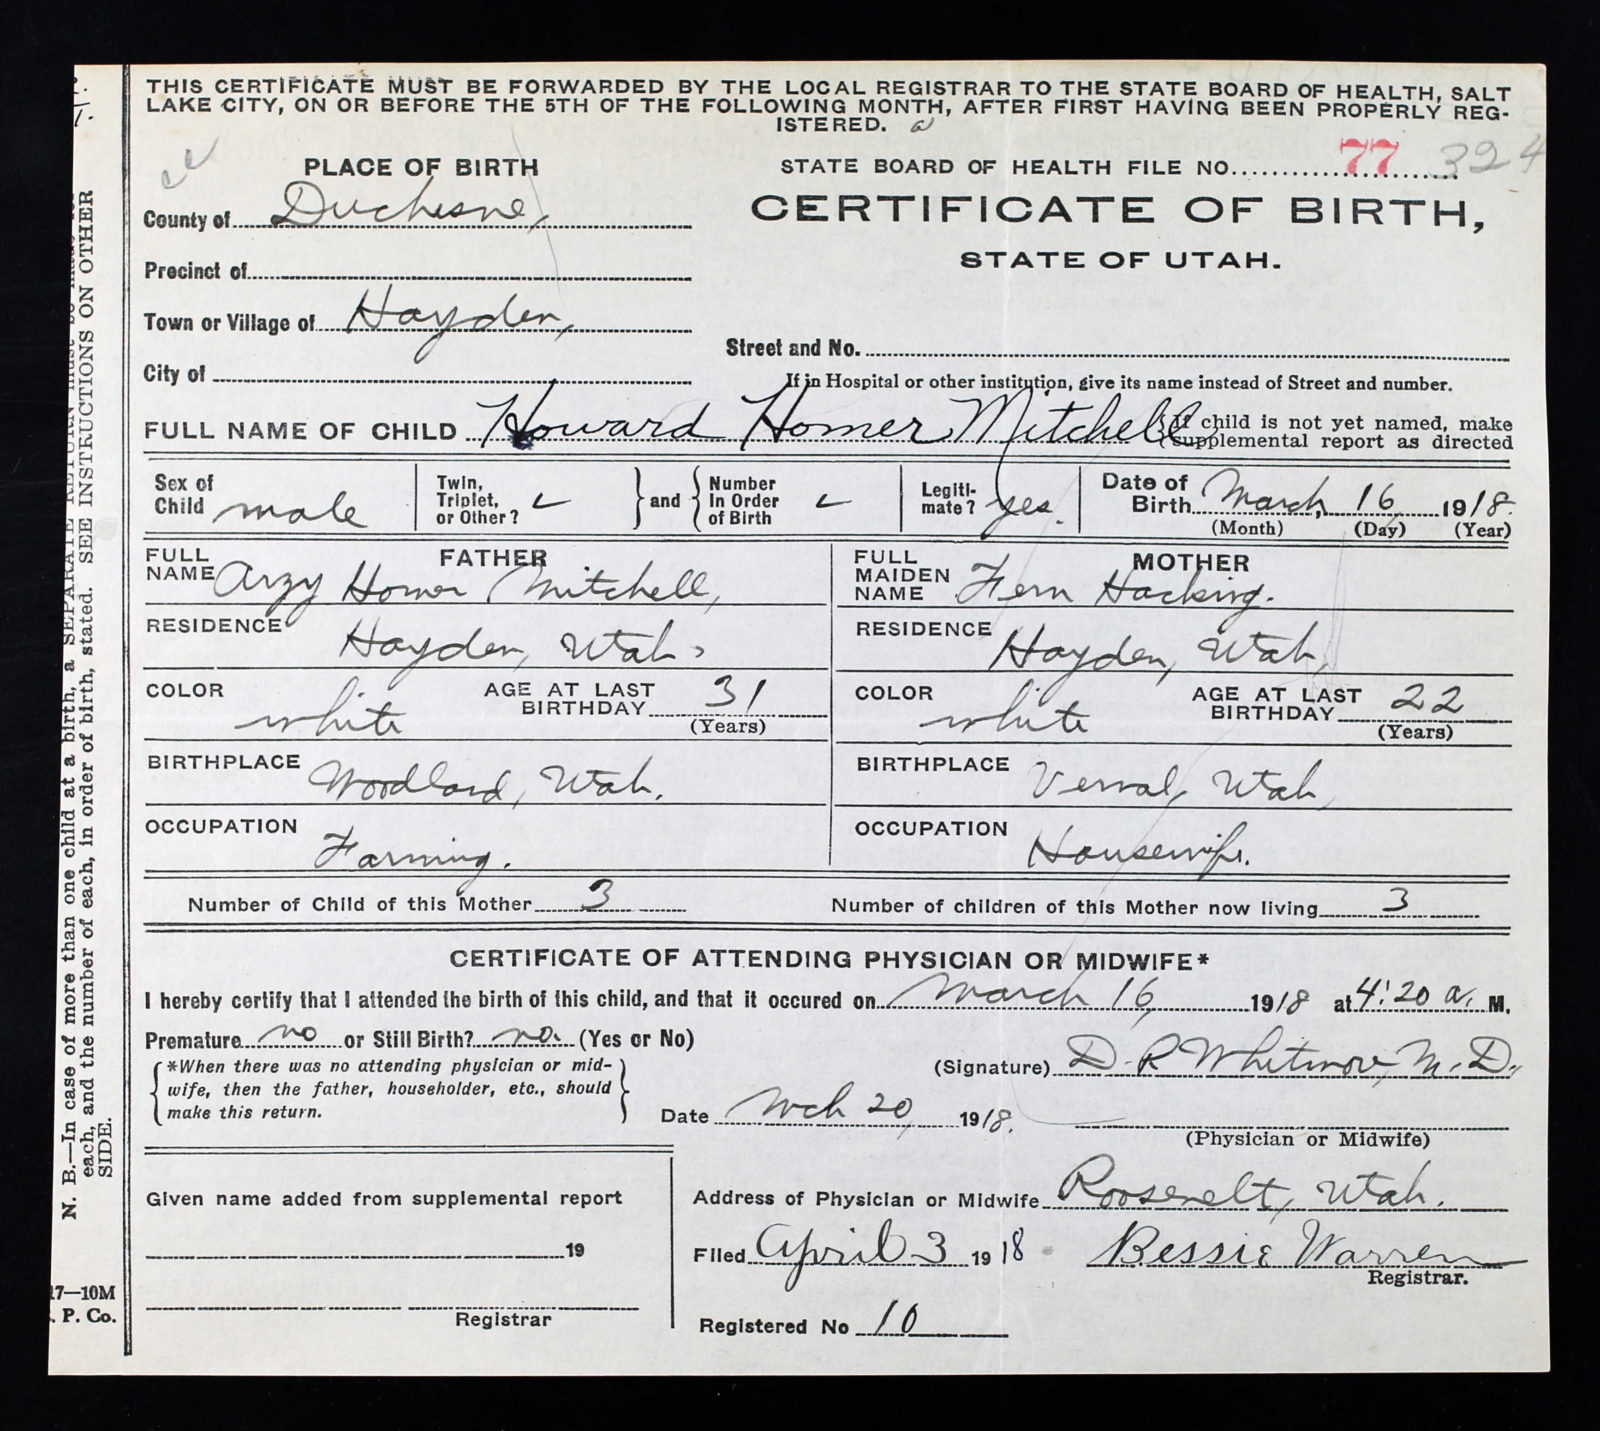 THIS CERTIFICATE MUST BE FORWARDED BY THE LOCAL REGISTRAR TO THE STATE BOARD OF HEALTH, SALT
LAKE CITY, ON OR BEFORE THE 5TH OF THE FOLLOWING MONTH, AFTER FIRST HAVING BEEN PROPERLY REG-
ISTERED.
PLACE OF BIRTH
STATE BOARD OF HEALTH FILE NO. 77 324
County of Duchesne,
CERTIFICATE OF BIRTH,
STATE OF UTAH.
Precinct of
Town or Village of Hayden,
Street and No.
City of
If in Hospital or other institution, give its name instead of Street and number.
FULL NAME OF CHILD Howard Homer Mitchell
If child is not yet named, make
supplemental report as directed
Sex of Child male
Twin, Triplet, or Other?
and
Number in Order of Birth
Legiti-mate? yes.
Date of Birth March, 16, 1918.
(Month) (Day) (Year)
FATHER
FULL NAME Arzy Homer Mitchell,
RESIDENCE Hayden, Utah,
COLOR white
AGE AT LAST BIRTHDAY 31
(Years)
BIRTHPLACE Woodland, Utah.
OCCUPATION Farming.
MOTHER
FULL MAIDEN NAME Fern Hacking.
RESIDENCE Hayden, Utah,
COLOR white
AGE AT LAST BIRTHDAY 22
(Years)
BIRTHPLACE Vernal, Utah,
OCCUPATION Housewife.
Number of Child of this Mother 3
Number of children of this Mother now living 3
CERTIFICATE OF ATTENDING PHYSICIAN OR MIDWIFE*
I hereby certify that I attended the birth of this child, and that it occured on March 16, 1918 at 4:20 a. M.
Premature no or Still Birth? no. (Yes or No)
*When there was no attending physician or mid-
wife, then the father, householder, etc., should
make this return.
(Signature) D. R Whitmore, M. D.,
Date Mch 20, 1918.
(Physician or Midwife)
Given name added from supplemental report
19
Registrar
Address of Physician or Midwife Roosevelt, Utah.
Filed April 3 1918
Bessie Warren
Registrar.
Registered No 10
N. B.—In case of more than one child at a birth, a SEPARATE RETURN must be made for
each, and the number of each, in order of birth, stated. SEE INSTRUCTIONS ON OTHER
SIDE.
17—10M
. P. Co.